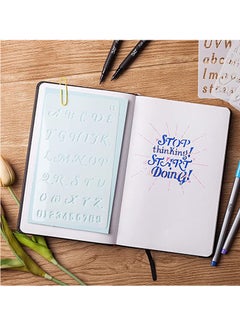 A B C D E
F G H I J K
L M N O P
Q R S T U
V W X Y Z
0123456789
STOP
thinking!
START
Doing!
U V W
a b c